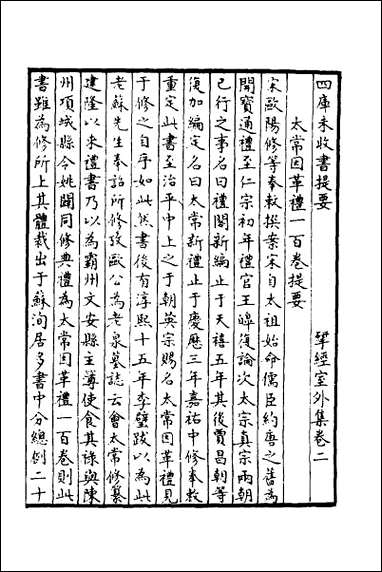 四庫未收書提要　　　揅經室外集卷二
太常因革禮一百卷提要
宋歐陽修等奉敕撰案宋自太祖始命儒臣約唐之舊為
開寶通禮至仁宗初年禮官王皥復論次太宗真宗兩朝
已行之事名曰禮閣新編止于天禧五年其後賈昌朝等
復加編定名曰太常新禮止于慶歷三年嘉祐中修奉敕
重定此書至治平中上之于朝英宗賜名太常因革禮見
于修之自序如此然書後有淳熙十五年李壁跋以為此
老蘇先生奉詔所修攷歐公為老泉墓誌云會太常修纂
建隆以來禮書乃以為霸州文安縣主簿使食其祿與陳
州項城縣令姚闢同修典禮為太常因革禮一百卷則此
書雖為修所上其體裁出于蘇洵居多書中分總例二十